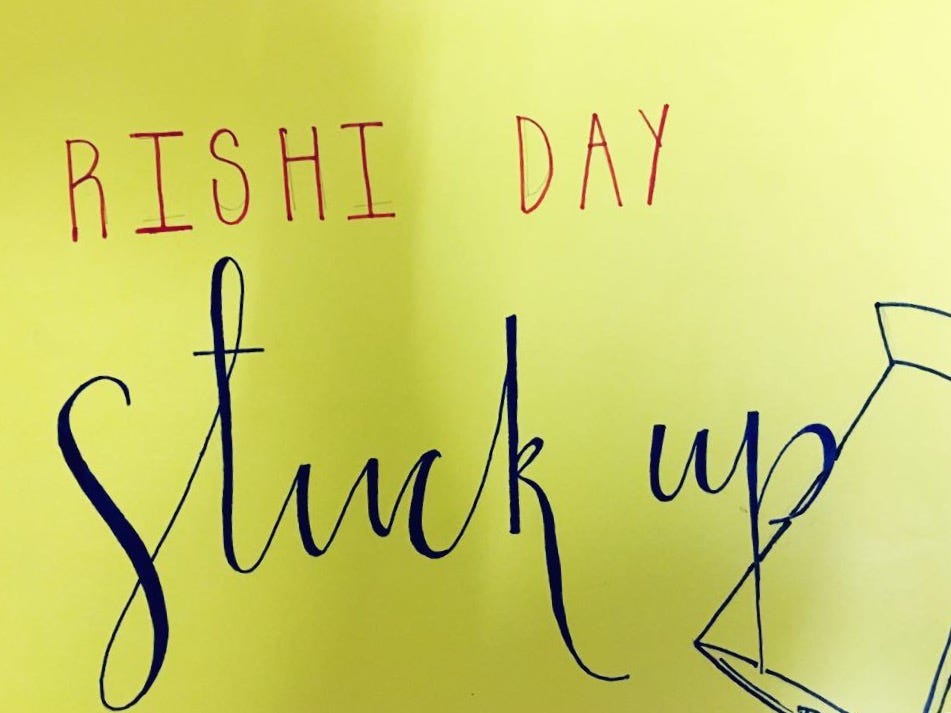 RISHI DAY
stuck up